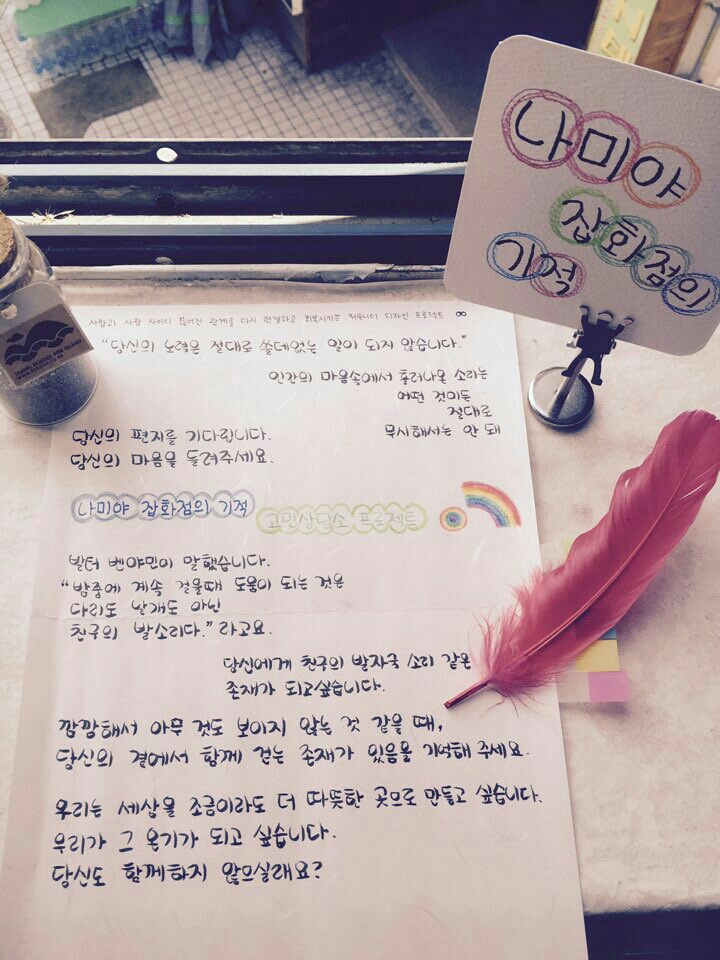 나미야
잡화점의
기적
사람과 사람 사이의 틀어진 관계를 다시 연결하고 회복시키는 커뮤니티 디자인 프로젝트 ∞
"당신의 노력은 절대로 쓸데없는 일이 되지 않습니다."
인간의 마음속에서 흘러나온 소리는
어떤 것이든
절대로
무시해서는 안 돼
당신의 편지를 기다립니다.
당신의 마음을 들려주세요.
나미야 잡화점의 기적 고민상담소 프로젝트
발터 벤야민이 말했습니다.
"밤중에 계속 걸을때 도움이 되는 것은
다리도 날개도 아닌
친구의 발소리다." 라고요.
당신에게 친구의 발자국 소리 같은
존재가 되고싶습니다.
깜깜해서 아무 것도 보이지 않는 것 같을 때,
당신의 곁에서 함께 걷는 존재가 있음을 기억해 주세요.
우리는 세상을 조금이라도 더 따뜻한 곳으로 만들고 싶습니다.
우리가 그 온기가 되고 싶습니다.
당신도 함께하지 않으실래요?